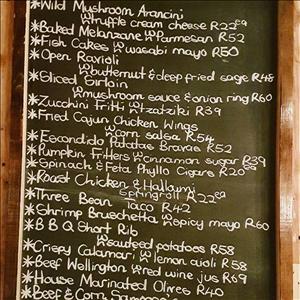 *Wild Mushroom Arancini
w truffle cream cheese R22ea
*Baked Melanzane w Parmesan R52
*Fish Cakes w wasabi mayo R50
*Open Ravioli
w butternut & deep fried sage R48
*Sliced Sirloin
w mushroom sauce & onion ring R60
*Zucchini Fritti w Tzatziki R39
*Fried Cajun Chicken Wings
w corn salsa R54
*Escondido Patatas Bravas R52
*Pumpkin Fritters w cinnamon sugar R39
*Spinach & Feta Phyllo Cigars R20ea
*Roast Chicken & Halloumi
Springroll R22ea
*Three Bean Taco R42
*Shrimp Bruschetta w spicy mayo R60
*BBQ Short Rib
w sauteed potatoes R58
*Crispy Calamari w lemon aioli R58
*Beef Wellington w red wine jus R69
*House Marinated Olives R40
*Beef & Corn